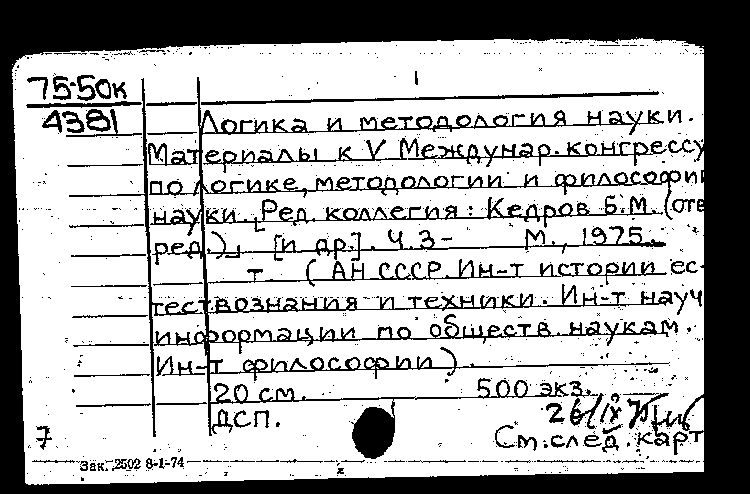 75-50к
4381
Логика и методология науки.
Материалы к V Междунар. конгрессу
по логике, методологии и философии
науки. [Ред. коллегия: Кедров Б.М. (отв
ред.)] [и др.]. Ч. 3- М., 1975.
т (АН СССР. Ин-т истории ес-
тествознания и техники. Ин-т науч
информации по обществ. наукам.
Ин-т философии).
20 см. 500 экз.
ДСП.
7 См. след. карт
Зак. 2502 8-1-74